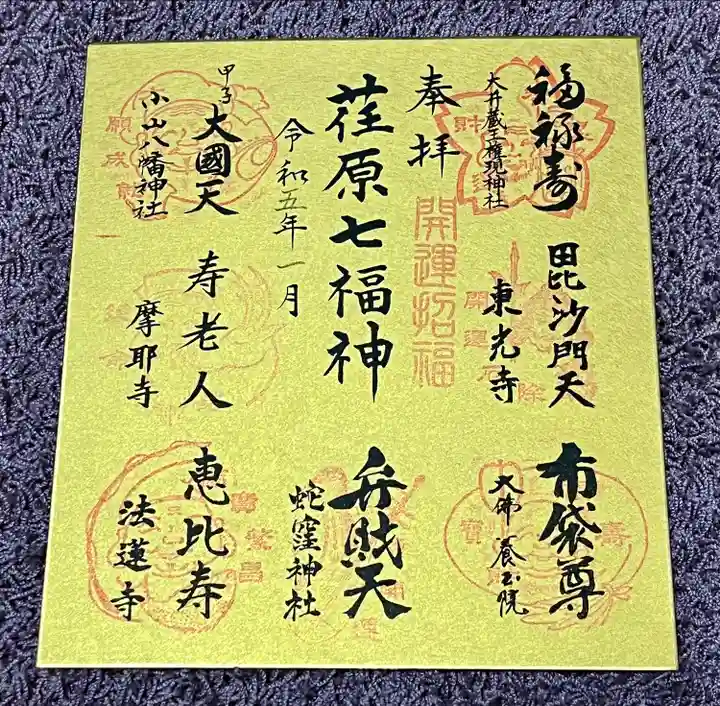 福禄寿
大井蔵王権現神社
毘沙門天
東光寺
布袋尊
大佛 養玉院
奉拝
開運招福
荏原七福神
弁財天
蛇窪神社
令和五年一月
甲子 大國天
小山八幡神社
寿老人
摩耶寺
恵比寿
法蓮寺